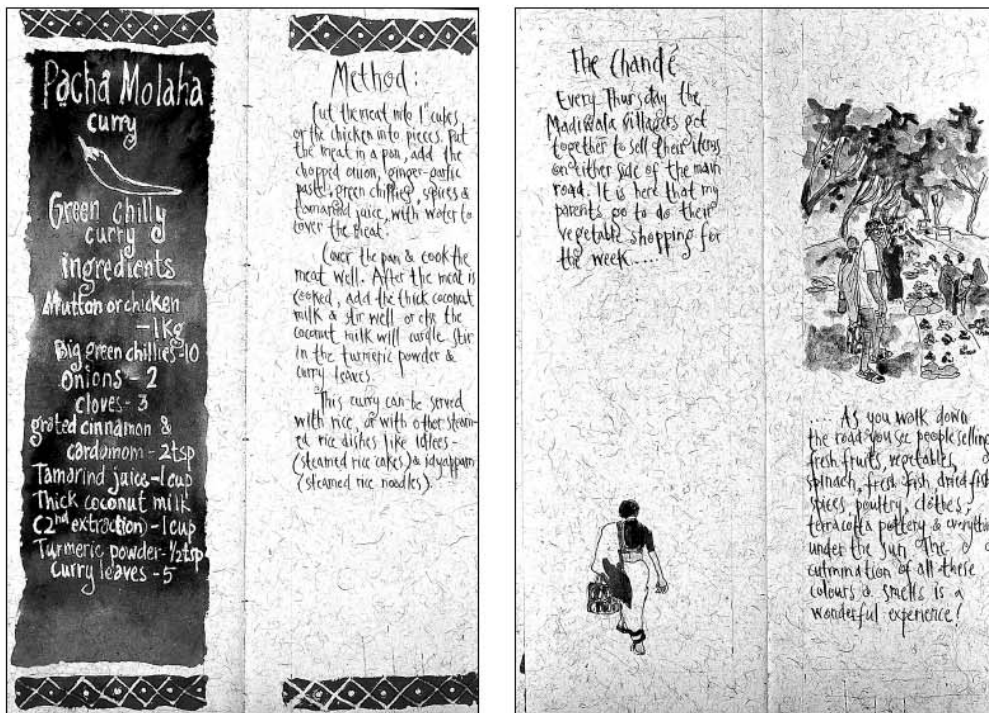 Pacha Molaha
curry
Green chilly
curry
ingredients
Mutton or chicken
-1kg
Big green chillies-10
Onions - 2
cloves- 3
grated cinnamon &
cardamom - 2tsp
Tamarind juice-1cup
Thick coconut milk
(2nd extraction)-1cup
Turmeric powder-½tsp
Curry leaves -5
Method:
Cut the meat into 1" cubes
or the chicken into pieces. Put
the meat in a pan, add the
chopped onion, ginger-garlic
paste, green chillies, spices &
tamarind juice, with water to
cover the meat.
Cover the pan & cook the
meat well. After the meat is
cooked, add the thick coconut
milk & stir well or else the
coconut milk will curdle. Stir
in the turmeric powder &
curry leaves.
This curry can be served
with rice, or with other steam-
ed rice dishes like idlees-
(steamed rice cakes) & idyappam
(steamed rice noodles).
The Chandé
Every Thursday the
Madiwala villagers get
together to sell their items
on either side of the main
road. It is here that my
parents go to do their
vegetable shopping for
the week.....
.... As you walk down
the road you see people selling
fresh fruits, vegetables,
spinach, fresh fish, dried fish
spices, poultry, clothes,
terracotta pottery & everything
under the sun. The
culmination of all these
colours & smells is a
wonderful experience!